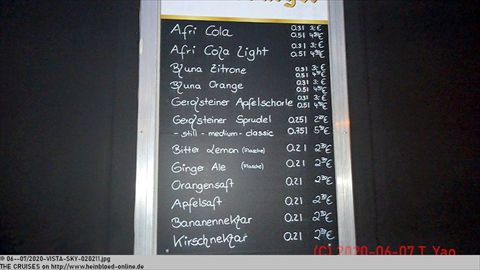 Afri Cola 0.3l 3.-€
0.5l 4.50€
Afri Cola Light 0.3l 3.-€
0.5l 4.50€
Bluna Zitrone 0.3l 3.-€
0.5l 4.50€
Bluna Orange 0.3l 3.-€
0.5l 4.50€
Gerolsteiner Apfelschorle 0.3l 3.-€
0.5l 4.50€
Gerolsteiner Sprudel 0.25l
- still - medium - classic 0.75l
Bitter Lemon (Flasche) 0.2l
Ginger Ale (Flasche) 0.2l
Orangensaft 0.2l
Apfelsaft 0.2l
Bananennektar 0.2l
Kirschnektar 0.2l
(C) 2020-06-07 T. Yao
© 06--07/2020-VISTA-SKY-020211.jpg
THE CRUISES on http://www.heinbloed-online.de